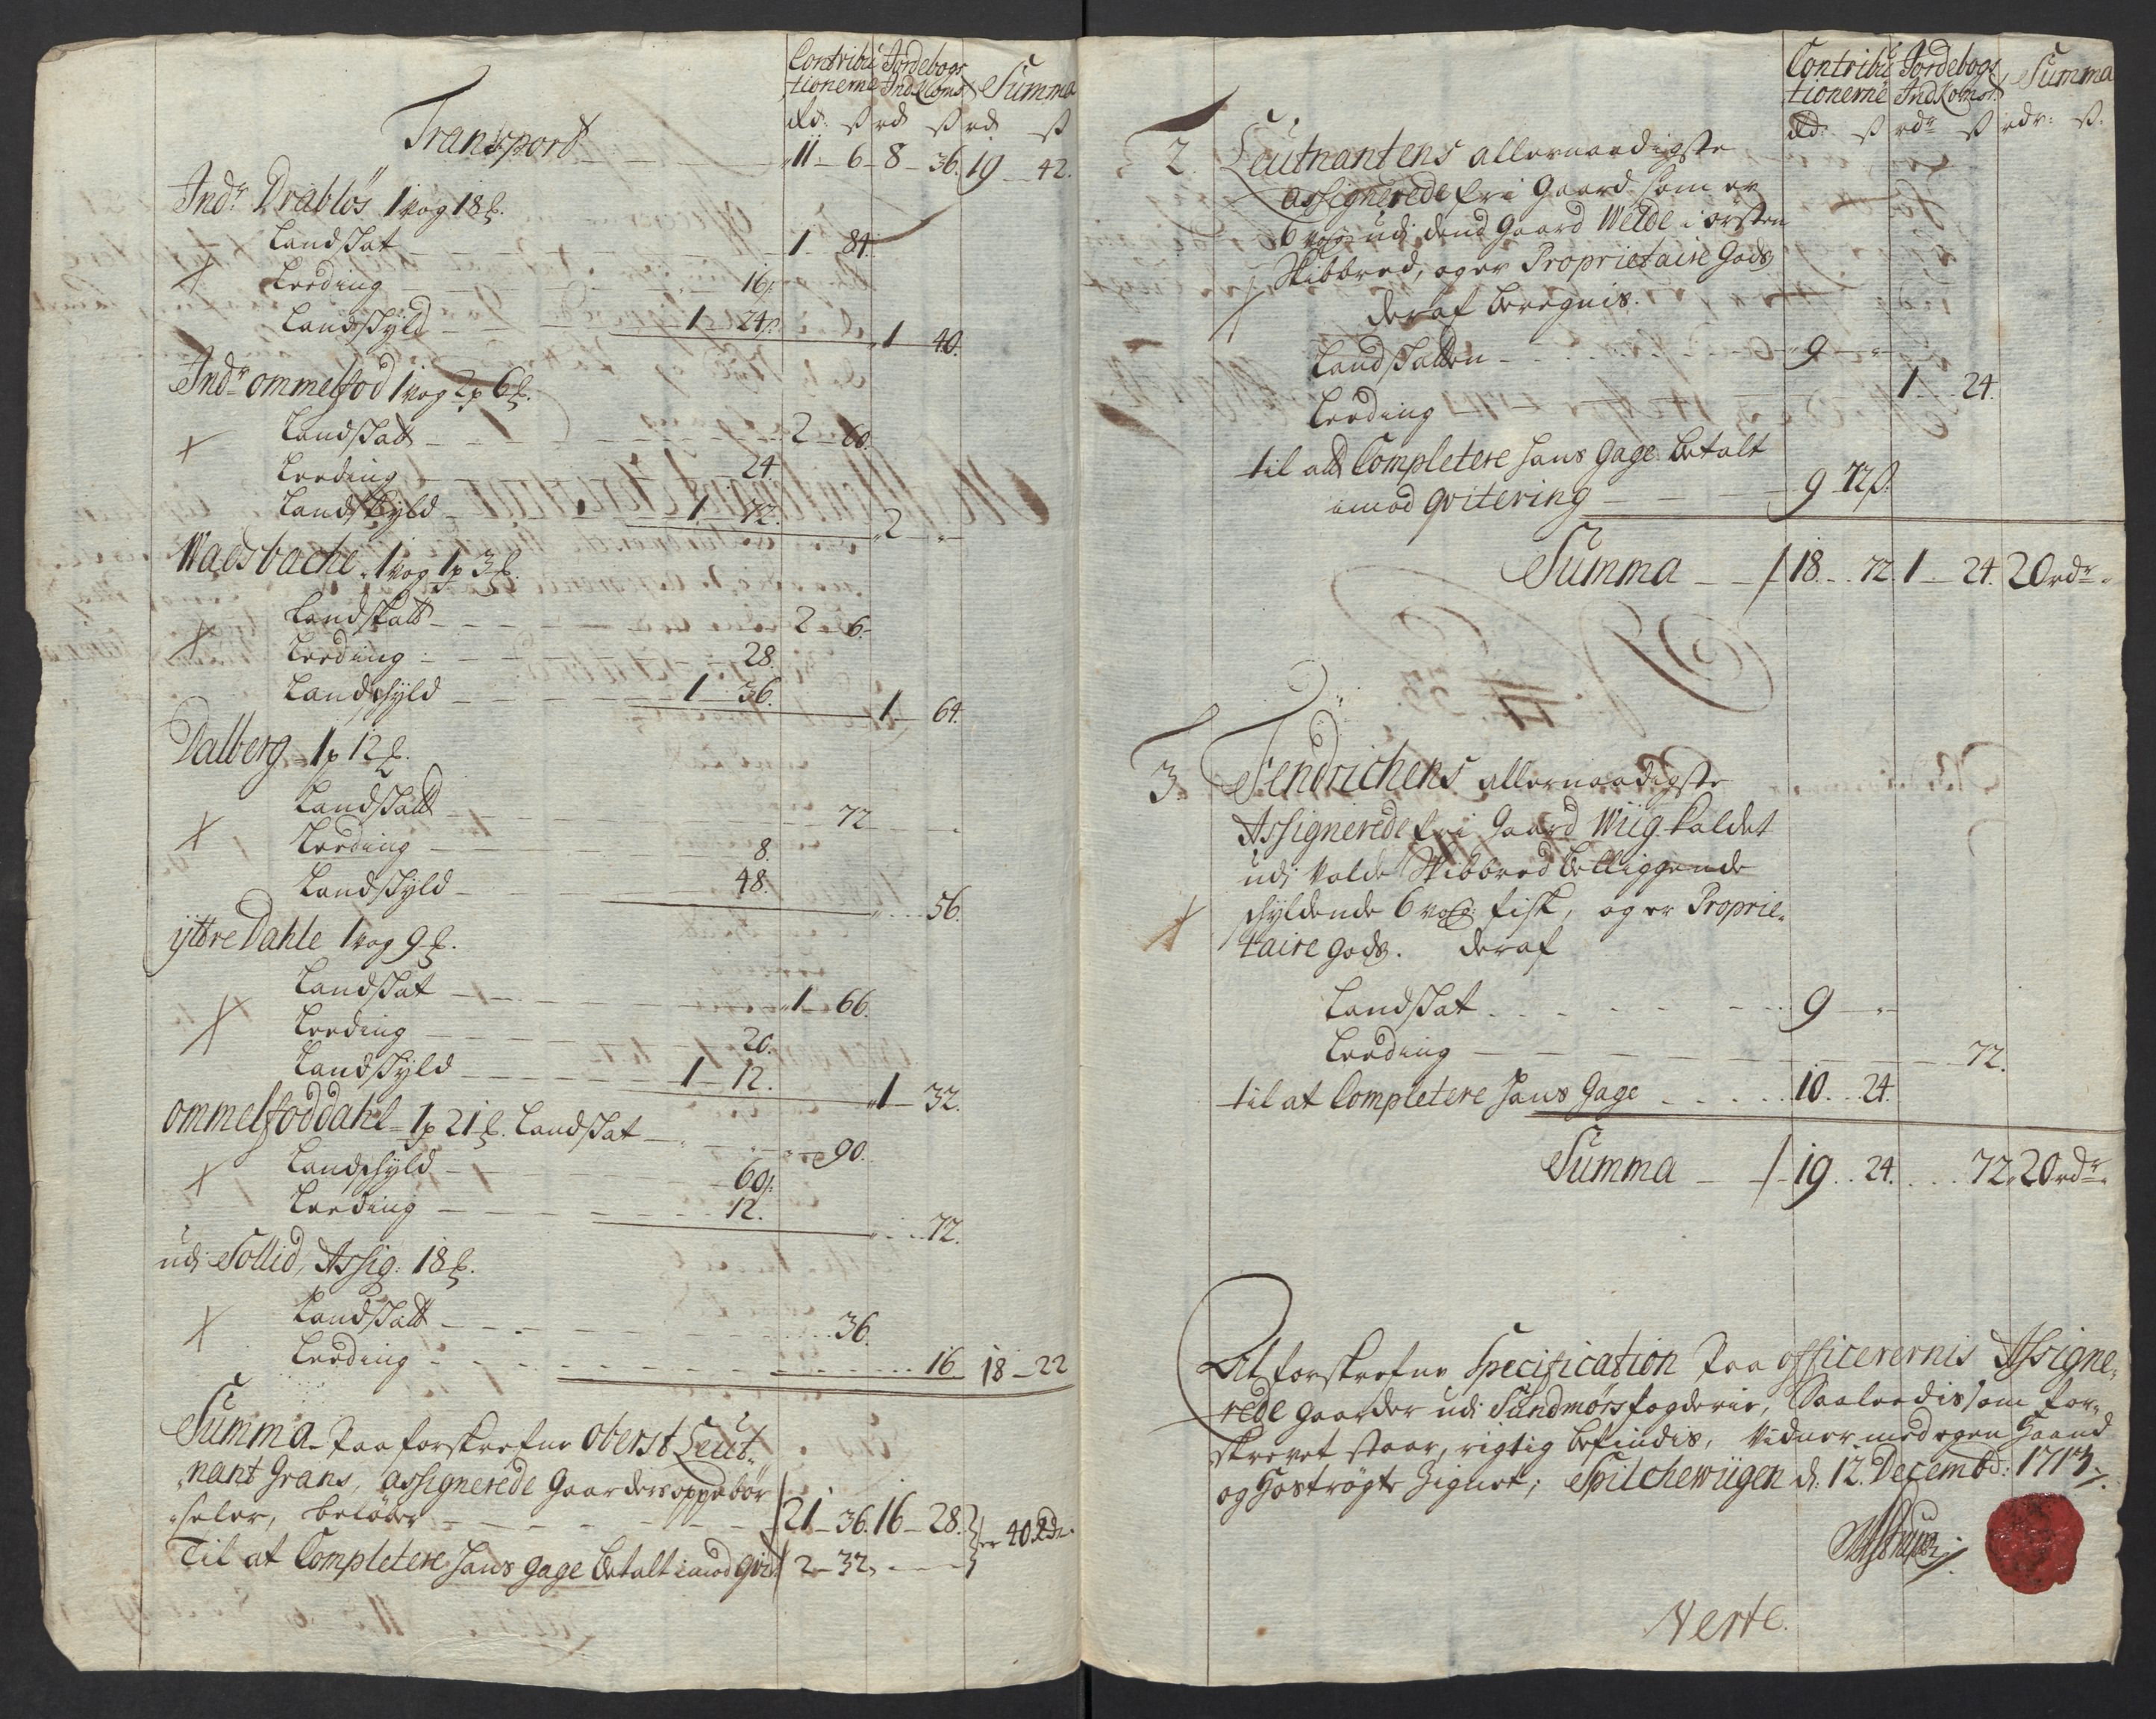 Contribu Jordebogs
tionerne Indkomst Summa
rd: ß rd ß rd ß
Transport 11 - 6 - 8 - 36. 19 - 42.
Indr Drabløs 1 vog 18 ℔.
Landskat 1 - 84.
Leeding 16.
Landskyld 1 - 24. 1 - 40.
Indr ommelfod 1 vog 2 p 6 ℔.
Landskatt 2 - 60.
Leeding 24
Landskyld 1 - 72. 2 - "
Waesbache 1 vog 1 p 3 ℔.
Landskatt 2 - 6.
Leeding 28.
Landskyld 1 - 36. 1 - 64.
Dalberg 1 p 12 ℔.
Landskatt 72
Leeding 8.
Landskyld 48. 56.
yttre Dahle 1 vog 9 ℔.
Landskat 1 - 66.
Leeding 20.
Landskyld 1 - 12. 1 - 32.
ommelfoddahl 1 p 21 ℔. Landskat 90.
Landskyld 60.
Leeding 12. 72.
udi Sollid, Assig: 18 ℔.
Landskatt 36.
Leeding 16 18 - 22
Summa Paa forskrefne Oberst Leut-
nant Grans, assignerede Gaarders oppebør
seler, beløber 21 - 36. 16 - 28. er 40 Rdr.
Til at Completere hans gage betalt imod qvit: 2 - 32.
Contribu Jordebogs
tionerne Indkomst. Summa
rd: ß rdr ß rdr: ß.
2. Leutnantens allernaadigste
assignerede fri Gaard som er
6 vog: udi dend Gaard Welde i ørsten
Skibbred, og er Proprietaire Gods,
deraf beregnis.
Landskatten 9 - "
Leeding 1 - 24.
til att Completere hans gage betalt
imod qvitering 9 - 72 ß.
Summa 18 - 72. 1 - 24. 20 rdr.
3. Fendrichens allernaadigste
Assignerede fri Gaard Wiig kaldet
udi Volds Skibbred beliggende
skyldende 6 vog: fisk, og er Proprie-
taire gods. deraf
Landskat 9 - "
Leeding 72.
til at Completere hans Gage 10 - 24.
Summa 19 - 24. 72. 20 rdr.
At forskrefne Specification Paa officerernis Assigne-
rede gaarder udi Sundmørs fogderie, Saaledis som for-
skrevet staar, rigtig befindis, vidner med egen Haand
og hostrøgte Signet; Spilchewiigen d: 12. Decembr: 1713.
Verte.